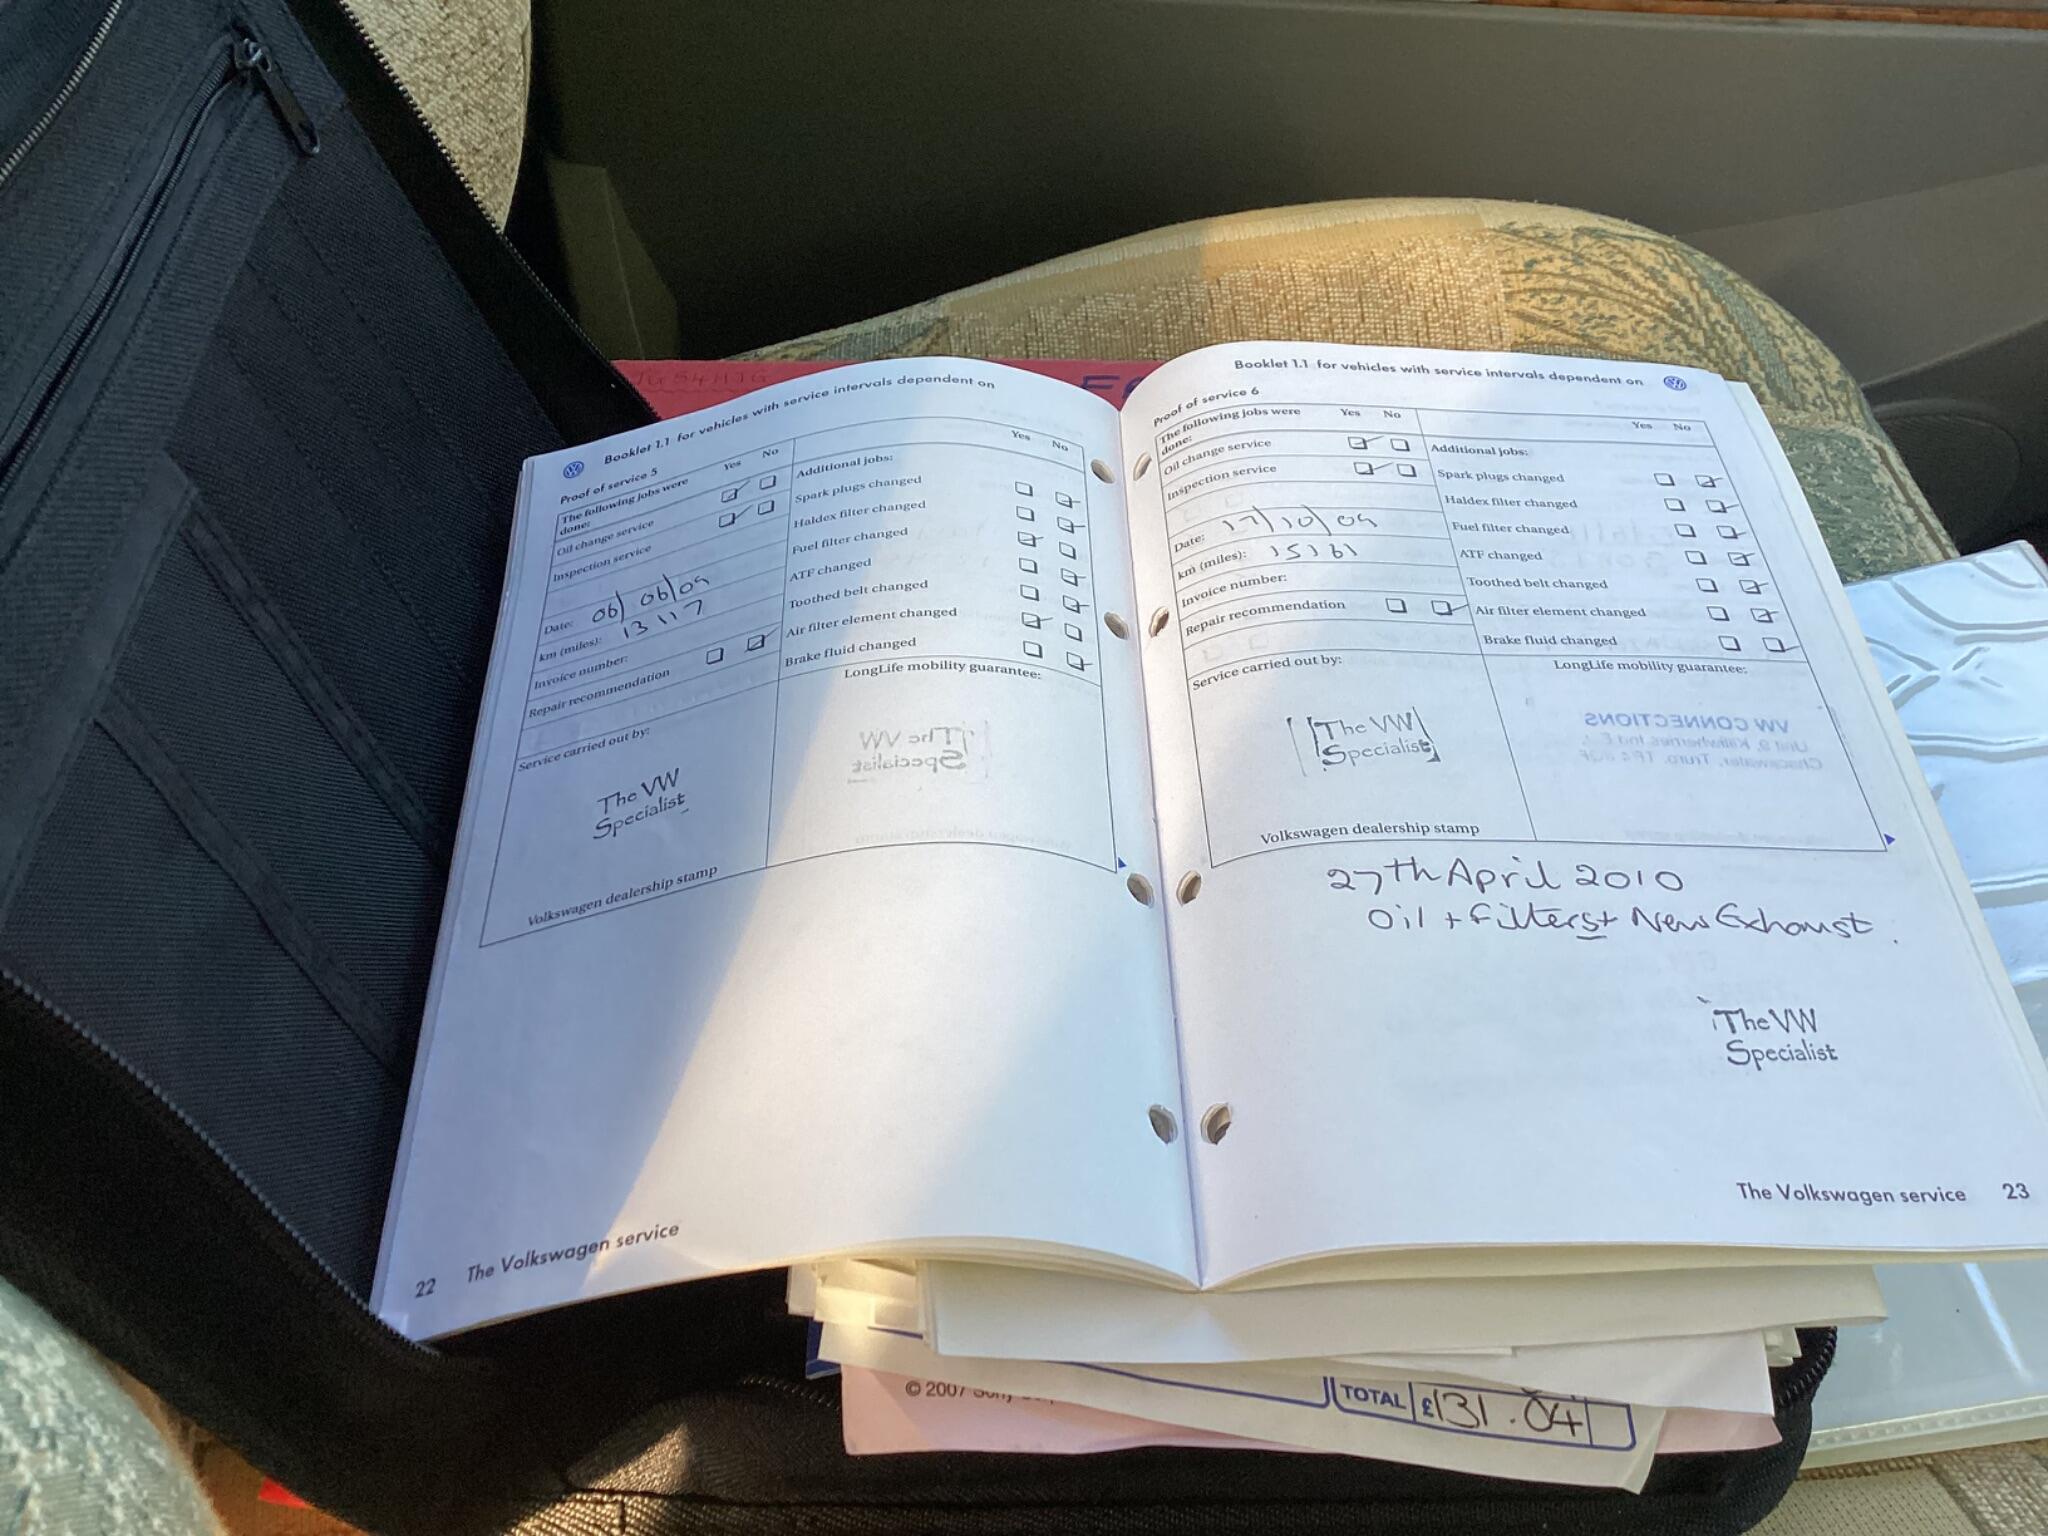 JG54HJG
Booklet 1.1 for vehicles with service intervals dependent on
Proof of service 5
The following jobs were done:
Yes No
Oil change service
Inspection service
Date: 06/06/09
km (miles): 13117
Invoice number:
Repair recommendation
Service carried out by:
The VW
Specialist
Volkswagen dealership stamp
Yes No
Additional jobs:
Spark plugs changed
Haldex filter changed
Fuel filter changed
ATF changed
Toothed belt changed
Air filter element changed
Brake fluid changed
LongLife mobility guarantee:
The VW
Specialist
22 The Volkswagen service
Booklet 1.1 for vehicles with service intervals dependent on
Proof of service 6
The following jobs were done:
Yes No
Oil change service
Inspection service
Date: 17/10/09
km (miles): 15161
Invoice number:
Repair recommendation
Service carried out by:
The VW
Specialist
Volkswagen dealership stamp
Yes No
Additional jobs:
Spark plugs changed
Haldex filter changed
Fuel filter changed
ATF changed
Toothed belt changed
Air filter element changed
Brake fluid changed
LongLife mobility guarantee:
VW CONNECTIONS
27th April 2010
Oil + Filters + New Exhaust.
The VW
Specialist
The Volkswagen service 23
© 2007 Sony
TOTAL £131.04